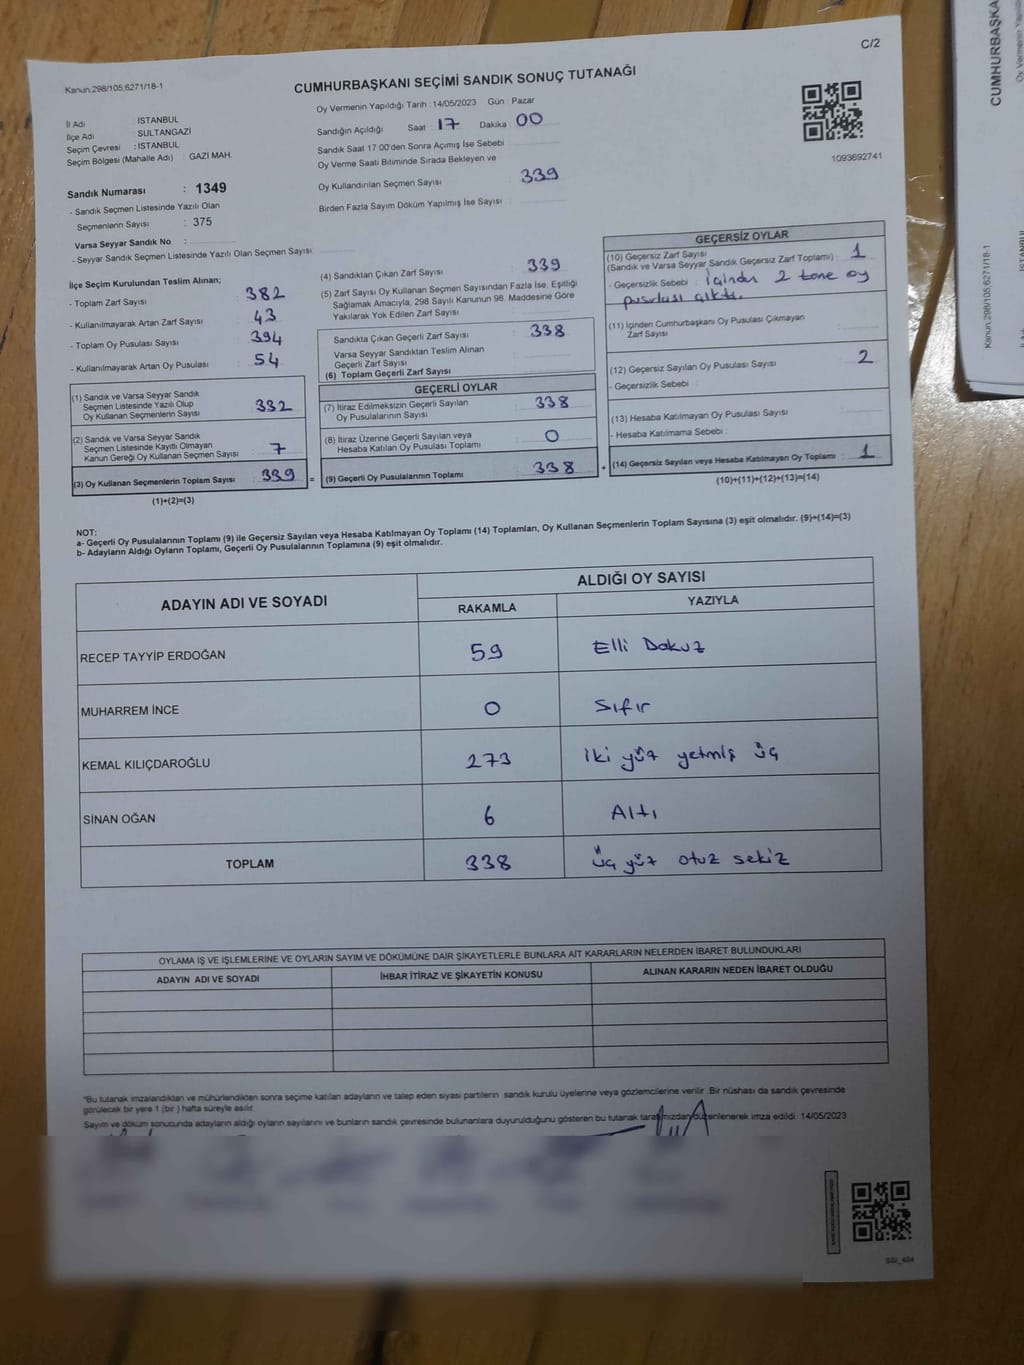 C/2
Kanun;298/105;6271/18-1
CUMHURBAŞKANI SEÇİMİ SANDIK SONUÇ TUTANAĞI
İl Adı : ISTANBUL
İlçe Adı : SULTANGAZI
Seçim Çevresi : ISTANBUL
Seçim Bölgesi (Mahalle Adı) : GAZI MAH.
Oy Vermenin Yapıldığı Tarih : 14/05/2023 Gün : Pazar
Sandığın Açıldığı Saat : 17 Dakika : 00
Sandık Saat 17:00'den Sonra Açımış İse Sebebi
Oy Verme Saati Bitiminde Sırada Bekleyen ve
Oy Kullandırılan Seçmen Sayısı : 339
Birden Fazla Sayım Döküm Yapılmış İse Sayısı :
1093692741
Sandık Numarası : 1349
- Sandık Seçmen Listesinde Yazılı Olan
Seçmenlerin Sayısı : 375
Varsa Seyyar Sandık No :
- Seyyar Sandık Seçmen Listesinde Yazılı Olan Seçmen Sayısı:
İlçe Seçim Kurulundan Teslim Alınan;
- Toplam Zarf Sayısı : 382
- Kullanılmayarak Artan Zarf Sayısı : 43
- Toplam Oy Pusulası Sayısı : 394
- Kullanılmayarak Artan Oy Pusulası : 54
(1) Sandık ve Varsa Seyyar Sandık
Seçmen Listesinde Yazılı Olup
Oy Kullanan Seçmenlerin Sayısı : 332
(2) Sandık ve Varsa Seyyar Sandık
Seçmen Listesinde Kayıtlı Olmayan
Kanun Gereği Oy Kullanan Seçmen Sayısı : 7
(3) Oy Kullanan Seçmenlerin Toplam Sayısı : 339
(1)+(2)=(3)
(4) Sandıktan Çıkan Zarf Sayısı : 339
(5) Zarf Sayısı Oy Kullanan Seçmen Sayısından Fazla İse, Eşitliği
Sağlamak Amacıyla; 298 Sayılı Kanunun 98. Maddesine Göre
Yakılarak Yok Edilen Zarf Sayısı :
Sandıkta Çıkan Geçerli Zarf Sayısı : 338
Varsa Seyyar Sandıktan Teslim Alınan
Geçerli Zarf Sayısı :
(6) Toplam Geçerli Zarf Sayısı :
GEÇERLİ OYLAR
(7) İtiraz Edilmeksizin Geçerli Sayılan
Oy Pusulalarının Sayısı : 338
(8) İtiraz Üzerine Geçerli Sayılan veya
Hesaba Katılan Oy Pusulası Toplamı : 0
= (9) Geçerli Oy Pusulalarının Toplamı : 338 +
GEÇERSİZ OYLAR
(10) Geçersiz Zarf Sayısı
(Sandık ve Varsa Seyyar Sandık Geçersiz Zarf Toplamı) : 1
- Geçersizlik Sebebi : İçinden 2 tane oy
pusulası çıktı.
(11) İçinden Cumhurbaşkanı Oy Pusulası Çıkmayan
Zarf Sayısı :
(12) Geçersiz Sayılan Oy Pusulası Sayısı : 2
- Geçersizlik Sebebi :
(13) Hesaba Katılmayan Oy Pusulası Sayısı :
- Hesaba Katılmama Sebebi :
(14) Geçersiz Sayılan veya Hesaba Katılmayan Oy Toplamı : 1
(10)+(11)+(12)+(13)=(14)
NOT:
a- Geçerli Oy Pusulalarının Toplamı (9) ile Geçersiz Sayılan veya Hesaba Katılmayan Oy Toplamı (14) Toplamları, Oy Kullanan Seçmenlerin Toplam Sayısına (3) eşit olmalıdır. (9)+(14)=(3)
b- Adayların Aldığı Oyların Toplamı, Geçerli Oy Pusulalarının Toplamına (9) eşit olmalıdır.
ADAYIN ADI VE SOYADI ALDIĞI OY SAYISI
RAKAMLA YAZIYLA
RECEP TAYYİP ERDOĞAN 59 Elli Dokuz
MUHARREM İNCE 0 Sıfır
KEMAL KILIÇDAROĞLU 273 iki yüz yetmiş üç
SİNAN OĞAN 6 Altı
TOPLAM 338 üç yüz otuz sekiz
OYLAMA İŞ VE İŞLEMLERİNE VE OYLARIN SAYIM VE DÖKÜMÜNE DAİR ŞİKAYETLERLE BUNLARA AİT KARARLARIN NELERDEN İBARET BULUNDUKLARI
ADAYIN ADI VE SOYADI İHBAR İTİRAZ VE ŞİKAYETİN KONUSU ALINAN KARARIN NEDEN İBARET OLDUĞU
*Bu tutanak imzalandıktan ve mühürlendikten sonra seçime katılan adayların ve talep eden siyasi partilerin sandık kurulu üyelerine veya gözlemcilerine verilir. Bir nüshası da sandık çevresinde
görülecek bir yere 1 (bir ) hafta süreyle asılır.
Sayım ve döküm sonucunda adayların aldığı oyların sayılarını ve bunların sandık çevresinde bulunanlara duyurulduğunu gösteren bu tutanak tarafımızdan düzenlenerek imza edildi. 14/05/2023
CUMHURBAŞKA
Kanun;298/105;6271/18-1